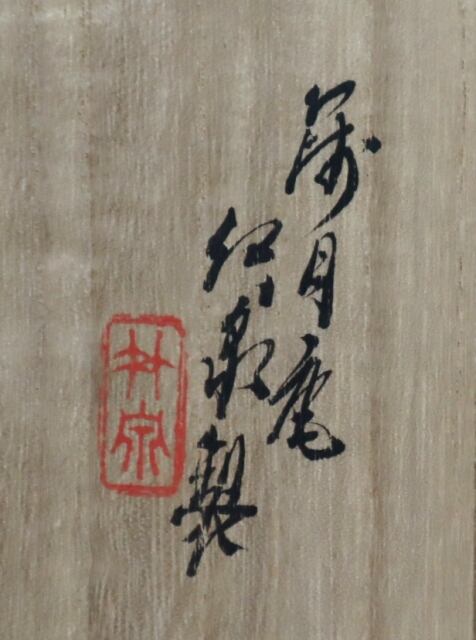 篩月庵
竹泉製
竹泉